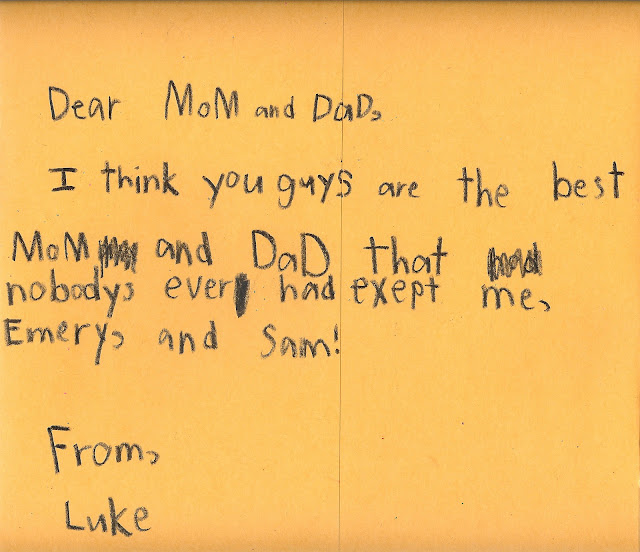 Dear MoM and DaD,
I think you guys are the best
MoM and DaD that
nobodys ever had exept me,
Emery, and Sam!
From,
Luke